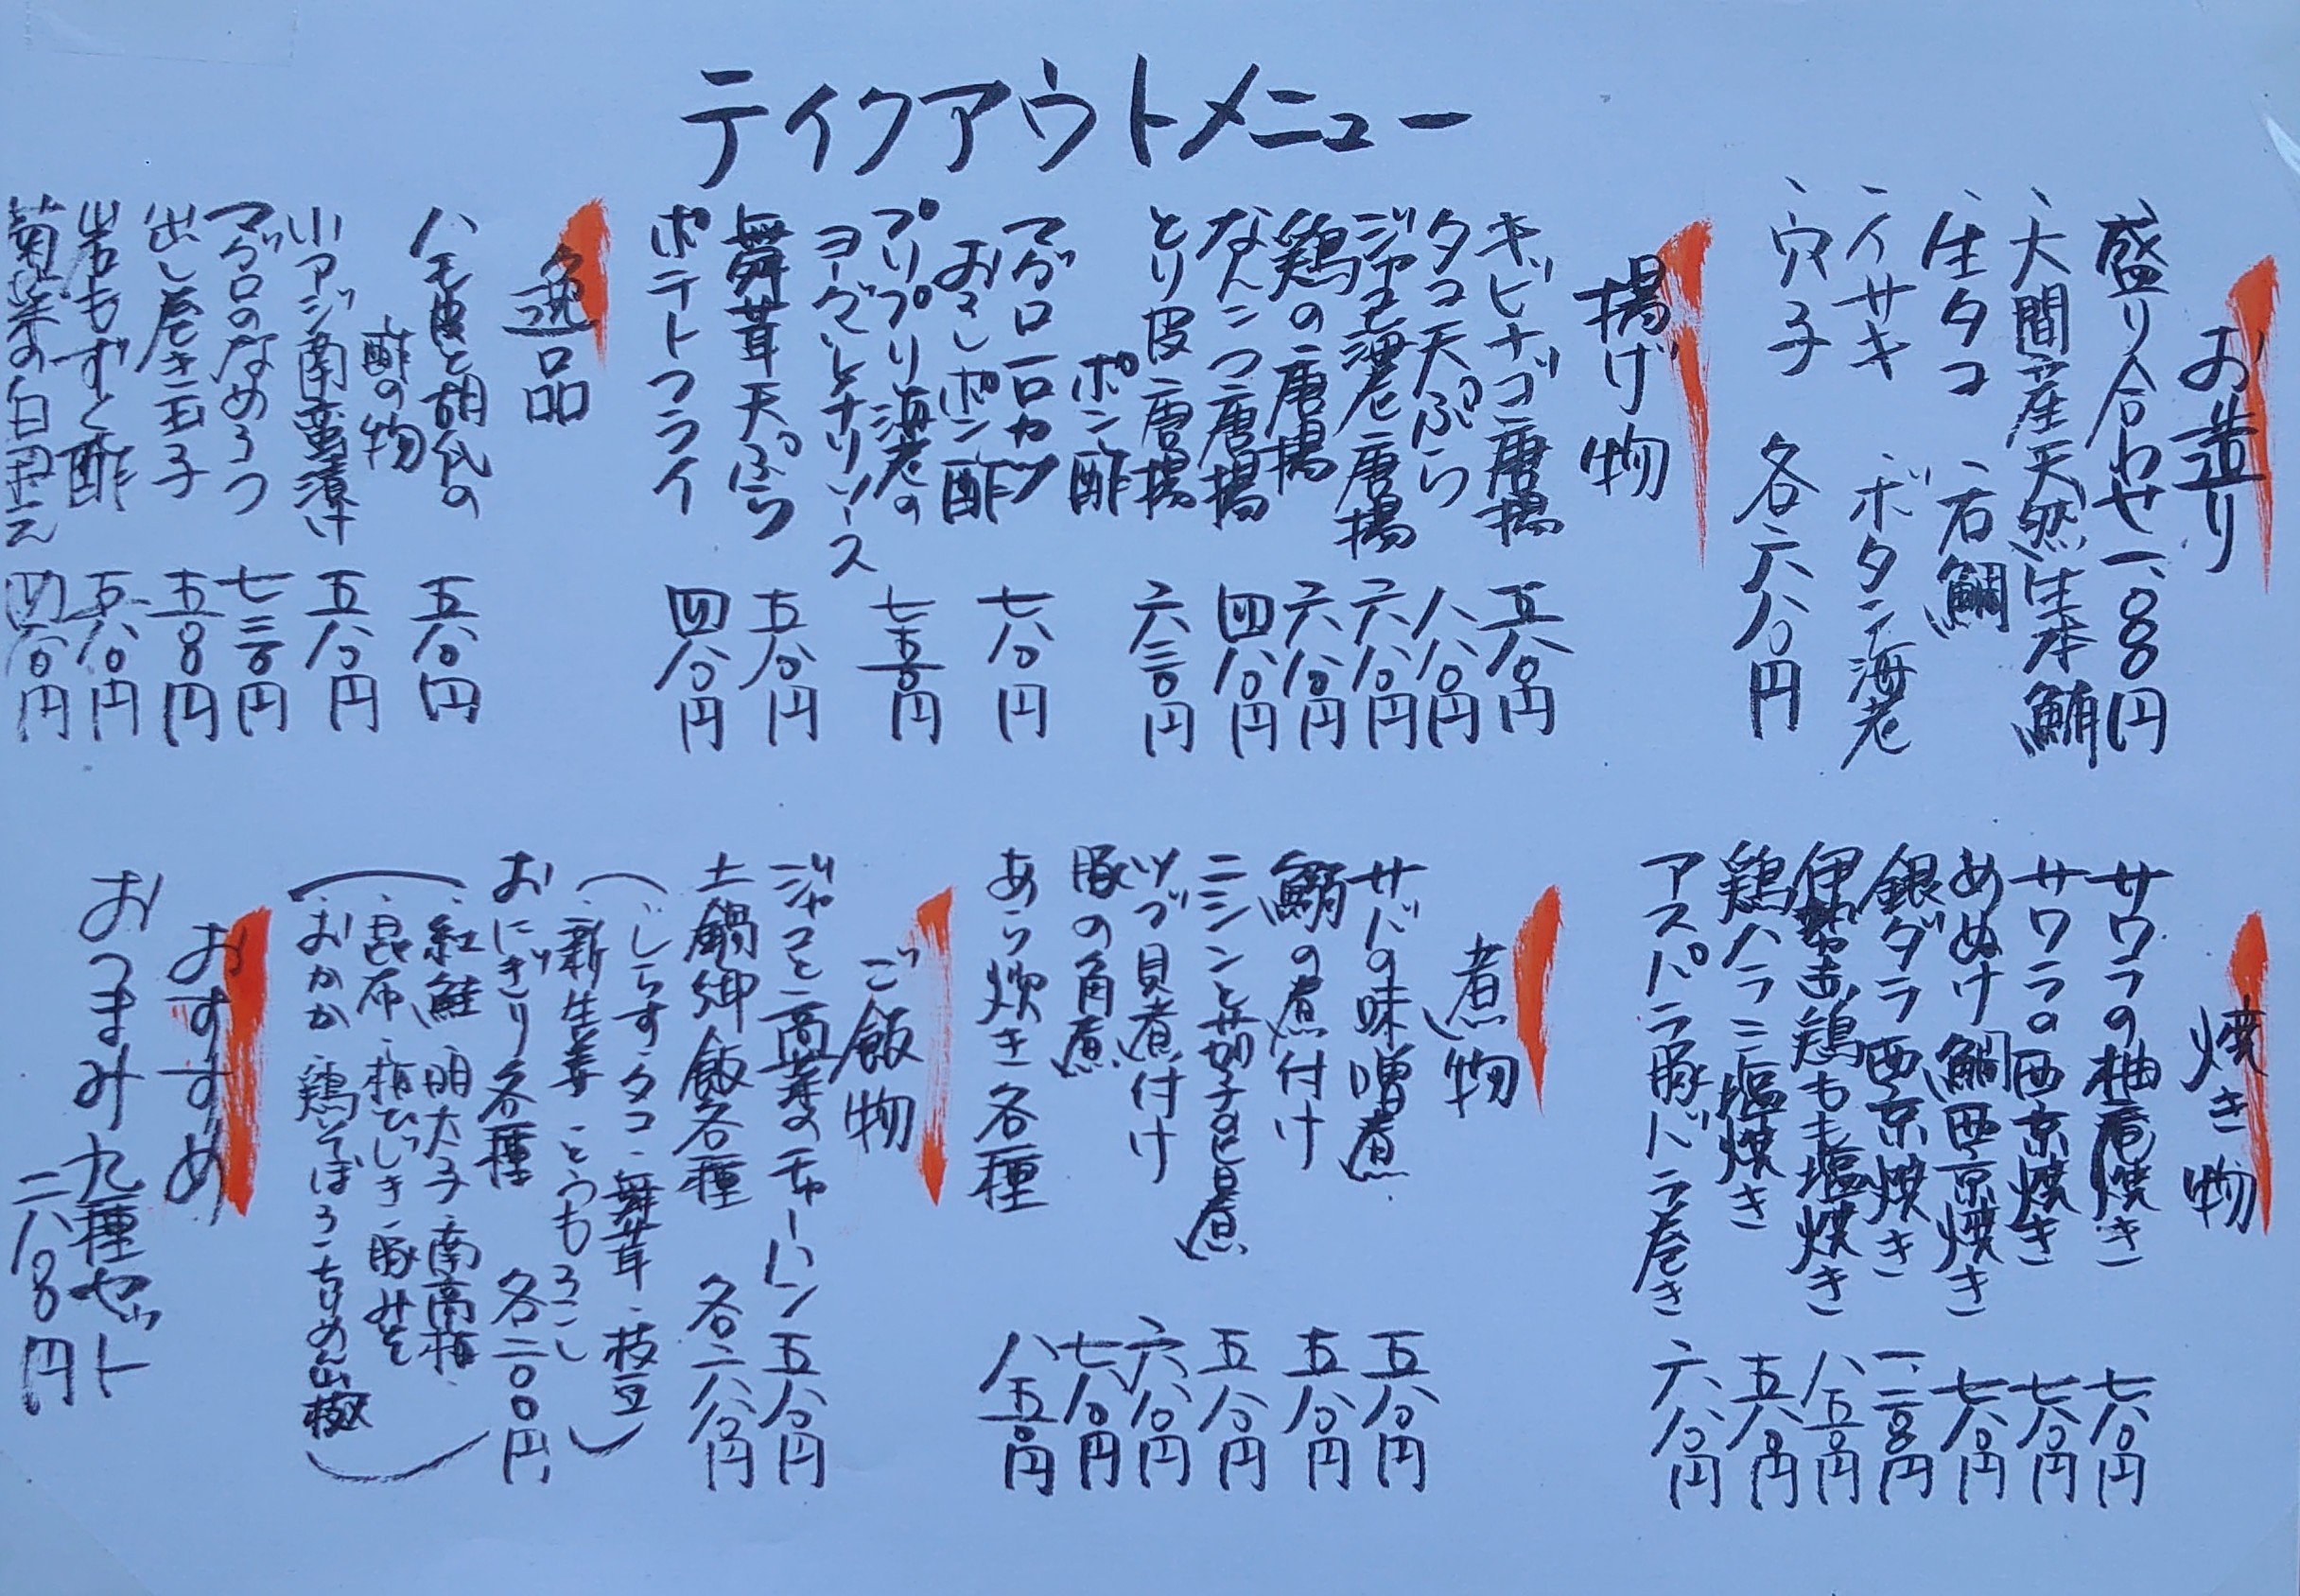 ティクアウトメニュー
お造り
盛り合わせ 一、八〇〇円
、大間産天然生本鮪
、生タコ 、石鯛
、イサキ ボタン海老
、穴子 各六八〇円
揚げ物
キビナゴ唐揚 五八〇円
タコ天ぷら 八八〇円
ジャコ海老唐揚 六八〇円
鶏の唐揚 六八〇円
なんこつ唐揚 四八〇円
とり皮唐揚 六三〇円
ポン酢
マグロ一口カツ 七八〇円
おろしポン酢
プリプリ海老の 七五〇円
ヨーグルトチリソース
舞茸天ぷら 五八〇円
ポテトフライ 四八〇円
逸品
ハモ皮と胡瓜の 五八〇円
酢の物
小アジ南蛮漬け 五八〇円
マグロのなめろう 七三〇円
出し巻き玉子 五五〇円
岩もずく酢 五八〇円
菊菜の白和え 四八〇円
焼き物
サワラの柚庵焼き 七八〇円
サワラの西京焼き 七八〇円
めぬけ鯛西京焼き 七八〇円
銀ダラ西京焼き 一、二八〇円
伊勢赤鶏もも塩焼き 八五〇円
鶏ハラミ塩焼き 五八〇円
アスパラ豚バラ巻き 六八〇円
煮物
サバの味噌煮 五八〇円
鰯の煮付け 五八〇円
ニシンと茄子の旨煮 五八〇円
ツブ貝煮付け 六八〇円
豚の角煮 七八〇円
あら炊き各種 八五〇円
ご飯物
ジャコと高菜のチャーハン 五八〇円
土鍋御飯各種 各二八〇〇円
(、しらす、タコ、舞茸、枝豆
、新生姜 とうもろこし)
おにぎり各種 各二〇〇円
(、紅鮭、明太子、南高梅、
、昆布、梅ひじき、豚みそ
、おかか、鶏そぼろ、ちりめん山椒)
おすすめ
おつまみ九種セット
二八〇〇円